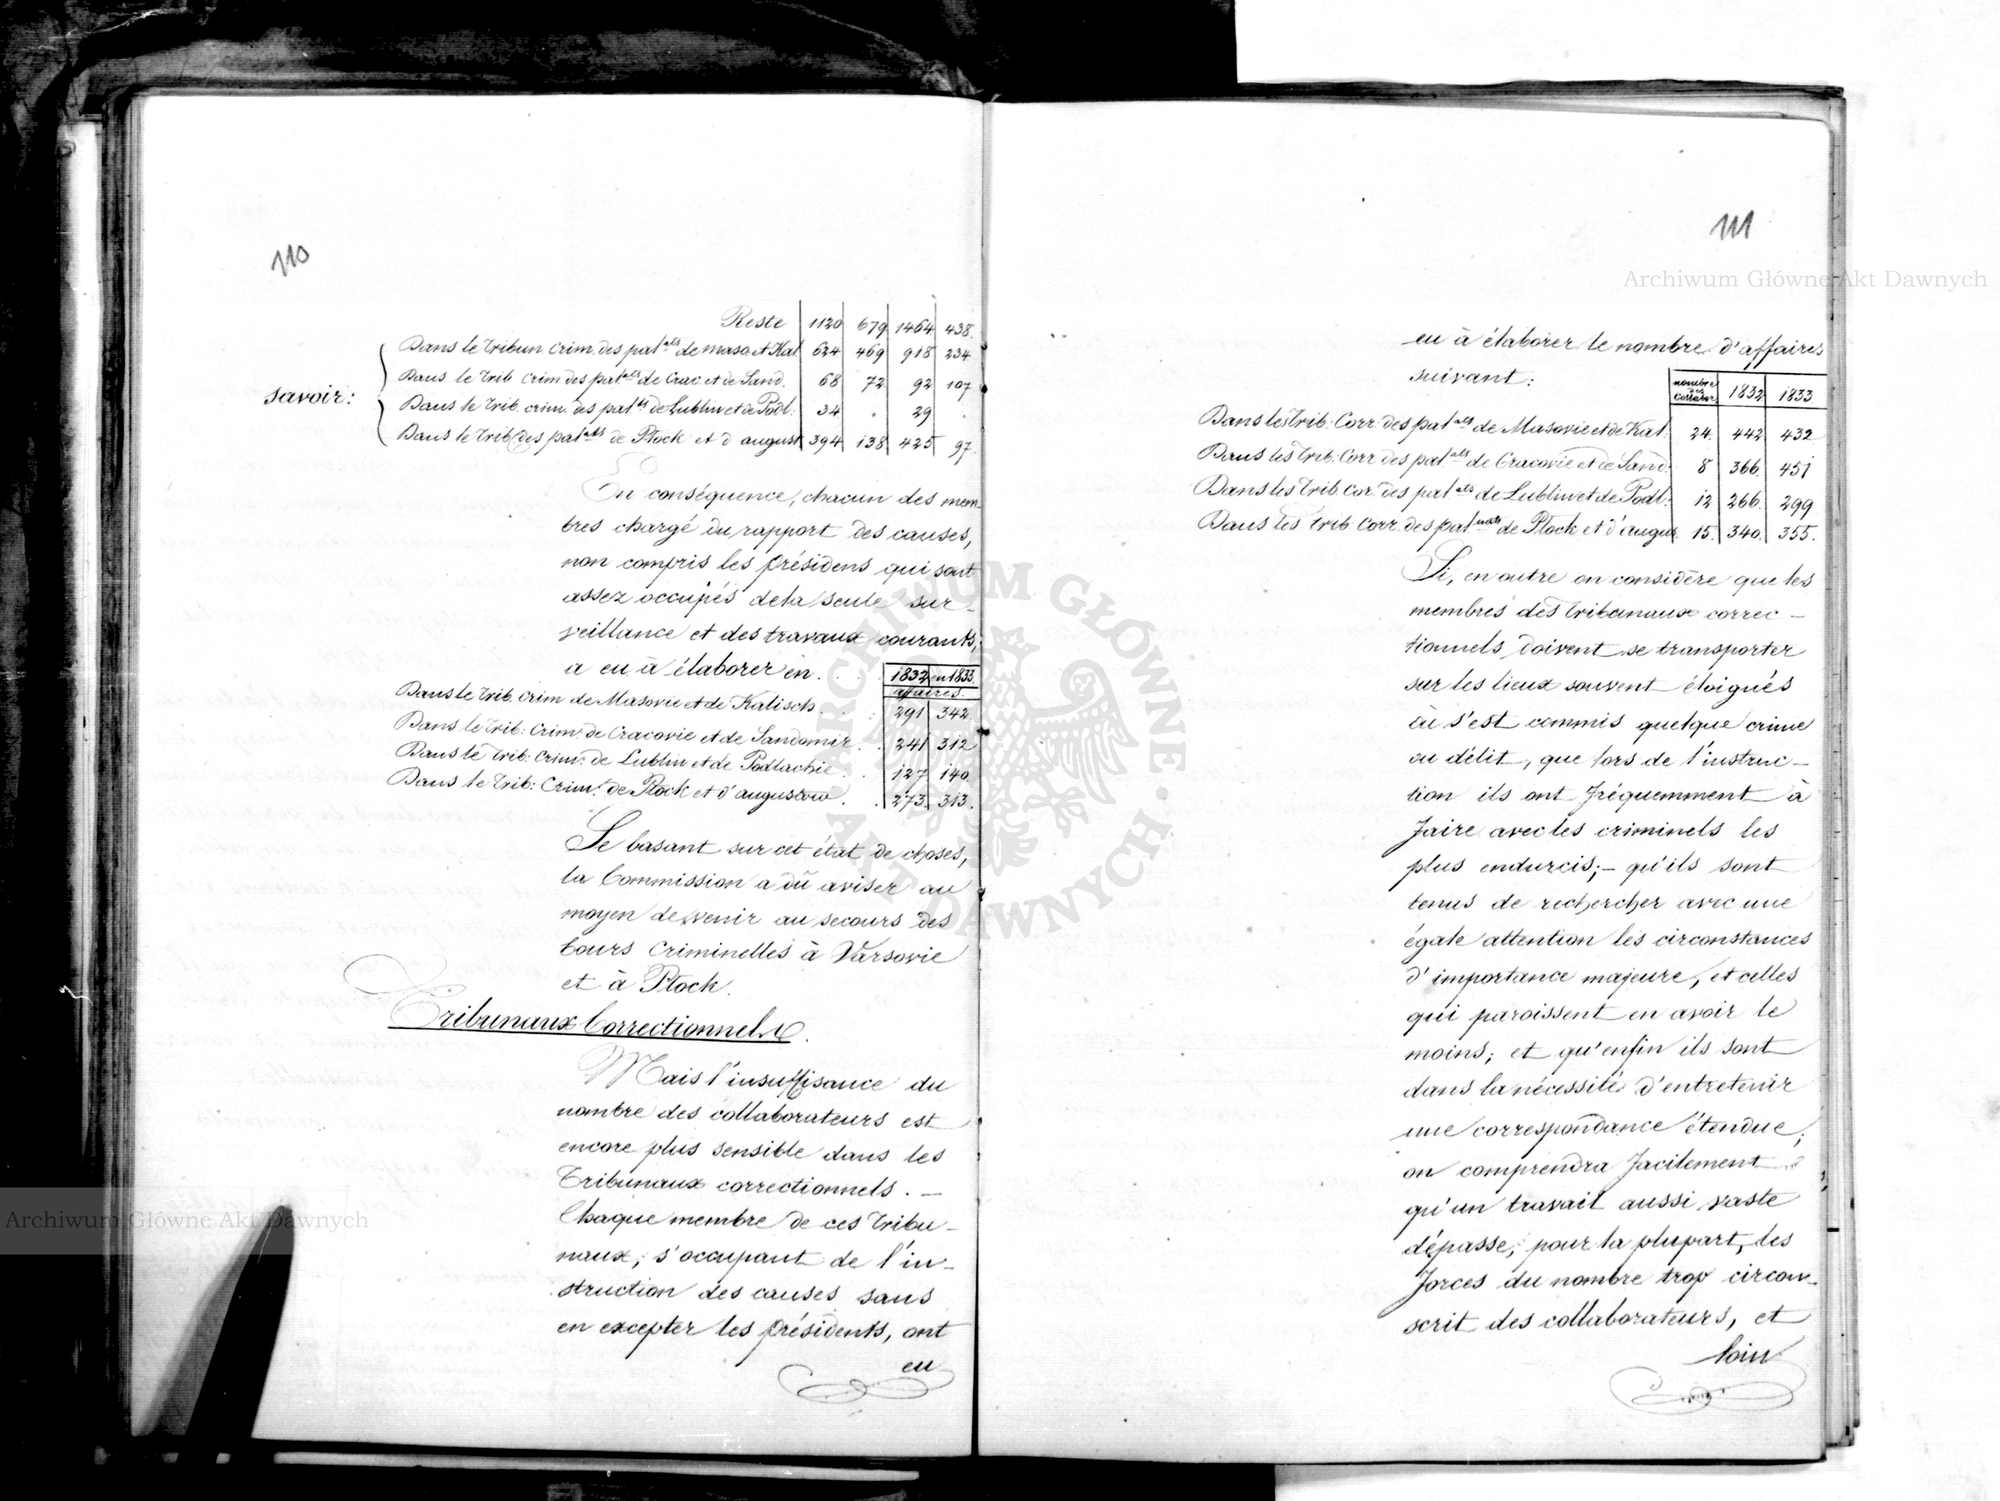 110
Reste 1120 679 1464 438.
savoir:
Dans le Tribun Crim. des pal.ats de Maso. et Kal 624 469 918 234
Dans le Trib Crim des pal.ats de Crac. et de Sand. 68 72 92 107
Dans le Trib. crim. des pal.ts de Lublin et de Podl: 34 . 29 .
Dans le Trib. des pal.ats de Plock et d'august 394 138 425 97.
En conséquence, chacun des mem-
bres chargé du rapport des causes,
non compris les présidens qui sont
assez occupés de la seule sur-
veillance et des travaux courants,
a eu à élaborer en . . . 1832 en 1833
affaires.
Dans le Trib. Crim de Masovie et de Kalisch . . . 291 342
Dans le Trib: Crim: de Cracovie et de Sandomir . . 241 312
Dans le Trib: Crim: de Lublin et de Podlachie . . 127 140.
Dans le Trib: Crim: de Plock et d'augustow . . 273. 313.
Se basant sur cet état de choses,
la Commission a dû aviser au
moyen de venir au secours des
Cours Criminelles à Varsovie
et à Plock.
Tribunaux Correctionnels.
Mais l'insuffisance du
nombre des collaborateurs est
encore plus sensible dans les
Tribunaux correctionnels. —
Chaque membre de ces Tribu-
naux, s'occupant de l'in-
struction des causes sans
en excepter les présidents, ont
eu
111
eu à élaborer le nombre d'affaires
suivant:
nombre des Collabor 1832 1833
Dans les Trib: Corr: des pal.ats de Masovie et de Kal. 24. 442 432
Dans les Trib: Corr des pal.ats de Cracovie et de Sand: 8 366. 451
Dans les Trib. Cor. des pal.ats de Lublin et de Podl: 12 266. 299
Dans les Trib. Corr. des pal.nats de Plock et d'augus 15. 340. 355.
Si, en outre on considère que les
membres des Tribunaux correc-
tionnels doivent se transporter
sur les lieux souvent éloignés
où s'est commis quelque crime
ou délit, que lors de l'instruc-
tion ils ont fréquemment à
faire avec les criminels les
plus endurcis; — qu'ils sont
tenus de rechercher avec une
égale attention les circonstances
d'importance majeure, et celles
qui paroissent en avoir le
moins; et qu'enfin ils sont
dans la nécessité d'entretenir
une correspondance étendue;
on comprendra facilement
qu'un travail aussi vaste
dépasse, pour la plupart, les
forces du nombre trop circon-
scrit des collaborateurs, et
loin
Archiwum Główne Akt Dawnych
Archiwum Główne Akt Dawnych
ARCHIWUM GŁÓWNE AKT DAWNYCH